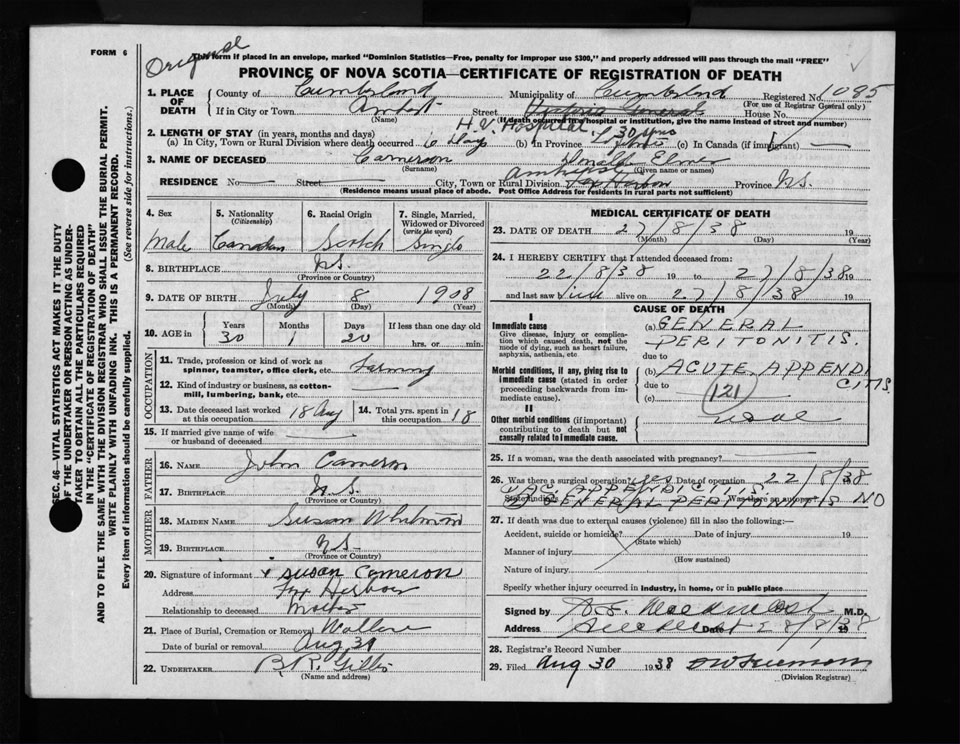 FORM 6
Original
This form if placed in an envelope, marked "Dominion Statistics—Free, penalty for improper use $300," and properly addressed will pass through the mail "FREE"
PROVINCE OF NOVA SCOTIA—CERTIFICATE OF REGISTRATION OF DEATH
1. PLACE OF DEATH County of Cumberland Municipality of Cumberland Registered No. 1085
(For use of Registrar General only)
If in City or Town Amherst Street House No.
(Name) (If death occurred in a hospital or institution, give the name instead of street and number)
H.V. Hospital
2. LENGTH OF STAY (in years, months and days)
(a) In City, Town or Rural Division where death occurred 6 days (b) In Province 30 yrs (c) In Canada (if immigrant) —
3. NAME OF DECEASED Cameron Elmer
(Surname) (Given name or names)
Amherst
RESIDENCE No. — Street City, Town or Rural Division Fox Harbor Province N.S.
(Residence means usual place of abode. Post Office Address for residents in rural parts not sufficient)
4. Sex Male
5. Nationality (Citizenship) Canadian
6. Racial Origin Scotch
7. Single, Married, Widowed or Divorced (write the word) Single
8. BIRTHPLACE N.S.
(Province or Country)
9. DATE OF BIRTH July 8 1908
(Month) (Day) (Year)
10. AGE in Years 30 Months 1 Days 20 If less than one day old hrs. or min.
OCCUPATION
11. Trade, profession or kind of work as spinner, teamster, office clerk, etc. Farming
12. Kind of industry or business, as cotton-mill, lumbering, bank, etc. —
13. Date deceased last worked at this occupation 18 Aug
14. Total yrs. spent in this occupation 18
15. If married give name of wife or husband of deceased —
FATHER
16. NAME John Cameron
17. BIRTHPLACE N.S.
(Province or Country)
MOTHER
18. MAIDEN NAME Susan
19. BIRTHPLACE N.S.
(Province or Country)
20. Signature of informant x Susan Cameron
Address Fox Harbour
Relationship to deceased Mother
21. Place of Burial, Cremation or Removal Wallace
Date of burial or removal Aug 30
22. UNDERTAKER B. R. Gillis
(Name and address)
MEDICAL CERTIFICATE OF DEATH
23. DATE OF DEATH 27/8/38 19
(Month) (Day) (Year)
24. I HEREBY CERTIFY that I attended deceased from:
22/8/38 19 to 27/8/38 19
and last saw him alive on 27/8/38 19
CAUSE OF DEATH
I
Immediate cause
Give disease, injury or complication which caused death, not the mode of dying, such as heart failure, asphyxia, asthenia, etc
(a) GENERAL PERITONITIS.
due to
Morbid conditions, if any, giving rise to immediate cause (stated in order proceeding backwards from immediate).
(b) ACUTE APPENDICITIS.
due to
(c) (121)
II
Other morbid conditions (if important) contributing to death but not causally related to immediate cause.
25. If a woman, was the death associated with pregnancy? —
26. Was there a surgical operation? yes Date of operation 22/8/38
State findings AC. APPENDICITIS Was there an autopsy? NO
GENERAL PERITONITIS
27. If death was due to external causes (violence) fill in also the following:—
Accident, suicide or homicide? Date of injury 19
(State which)
Manner of injury
(How sustained)
Nature of injury
Specify whether injury occurred in industry, in home, or in public place
Signed by M.D.
Address Date 28/8/38 19
28. Registrar's Record Number
29. Filed Aug 30 1938
(Division Registrar)
SEC. 46—VITAL STATISTICS ACT MAKES IT THE DUTY
OF THE UNDERTAKER OR PERSON ACTING AS UNDER-
TAKER TO OBTAIN ALL THE PARTICULARS REQUIRED
IN THE "CERTIFICATE OF REGISTRATION OF DEATH"
AND TO FILE THE SAME WITH THE DIVISION REGISTRAR WHO SHALL ISSUE THE BURIAL PERMIT.
WRITE PLAINLY WITH UNFADING INK. THIS IS A PERMANENT RECORD.
Every item of information should be carefully supplied. (See reverse side for instructions.)